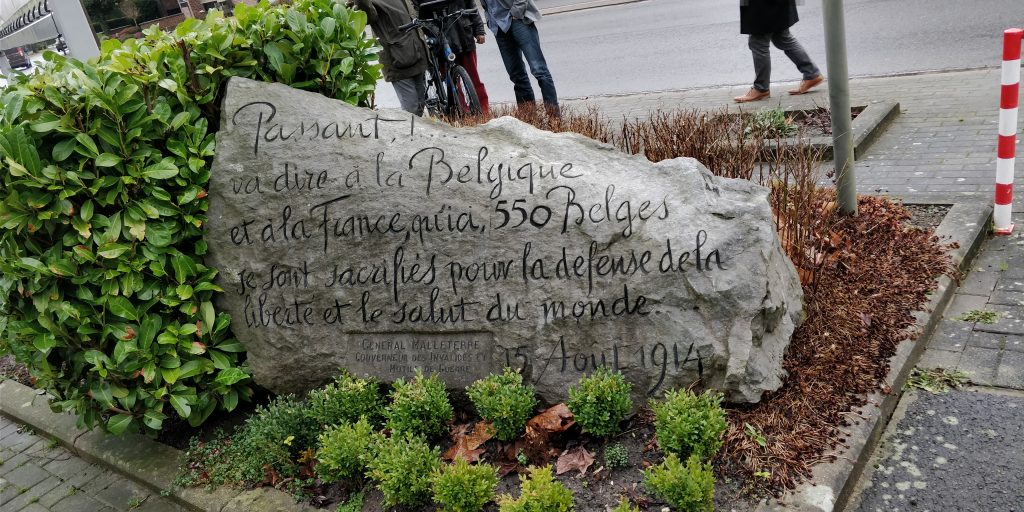 Passant,!...
va dire à la Belgique
et à la France, qu'ici, 550 Belges
se sont sacrifiés pour la defense de la
liberte et le salut du monde.
GENERAL MALLETERRE
GOUVERNEUR DES INVALIDES ET
MUTILES DE GUERRE
15 Aout 1914